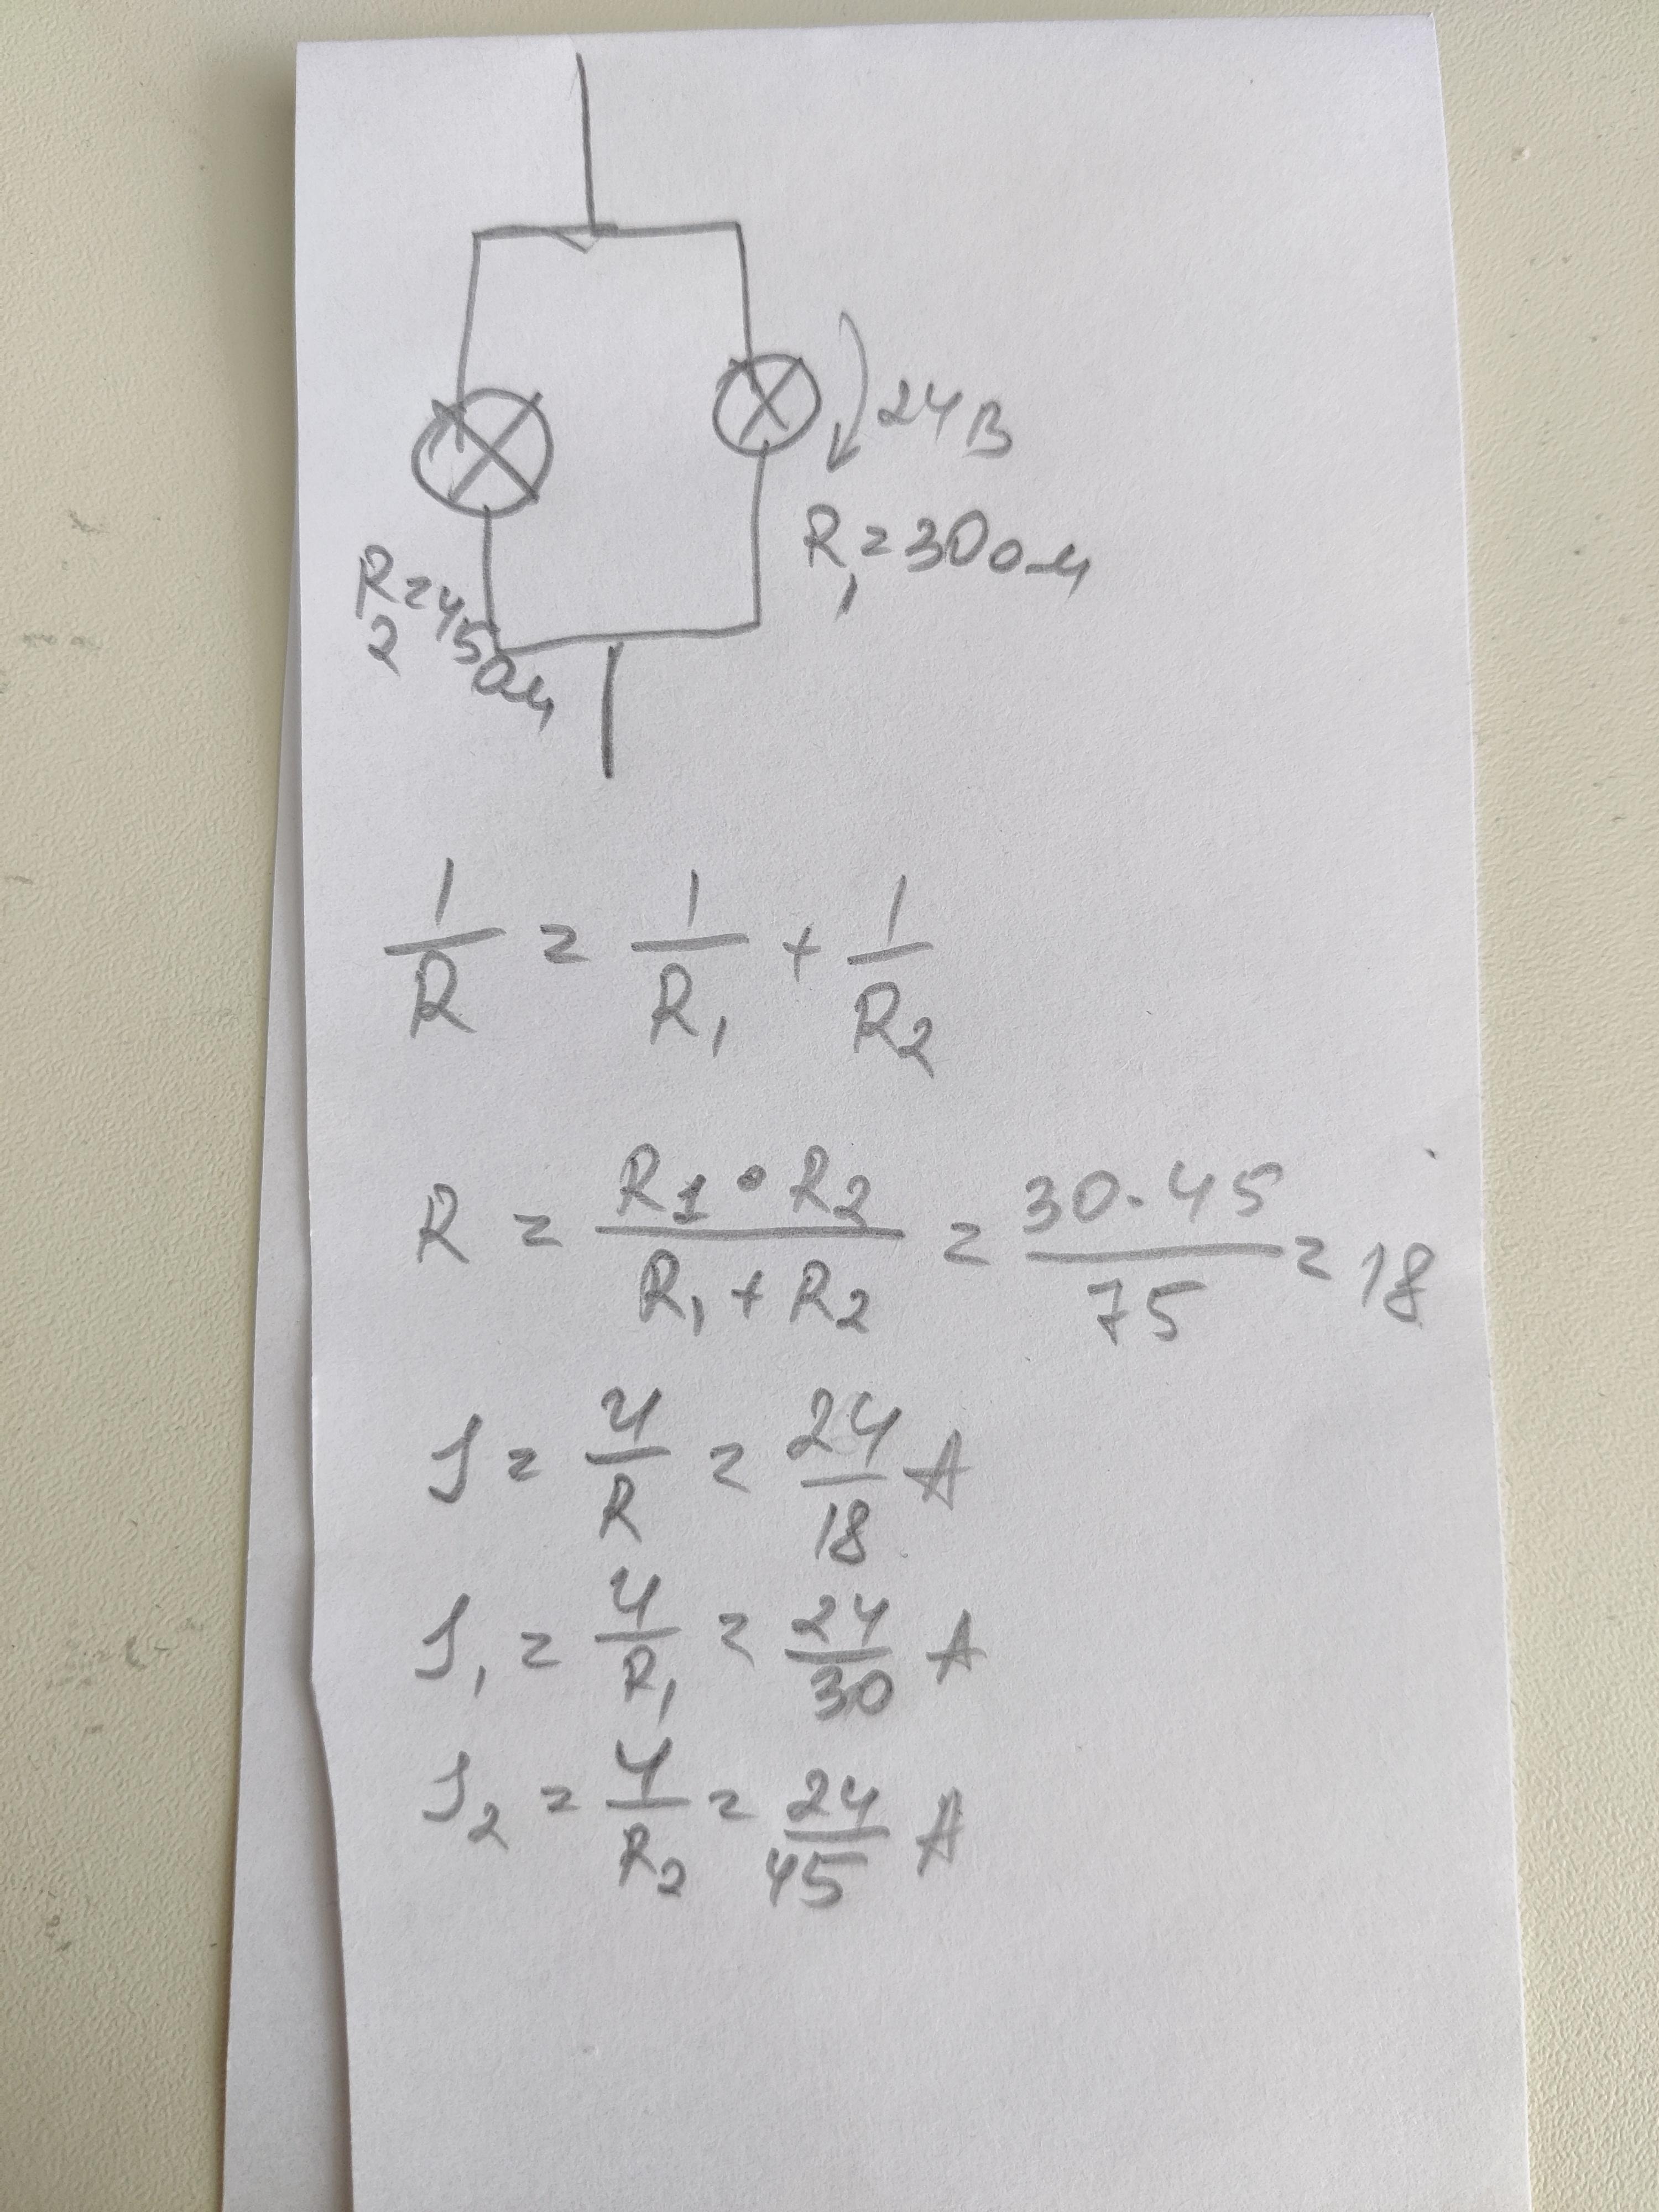 24В
R₁=30Ом
R₂=45Ом
1/R = 1/R₁ + 1/R₂
R = R₁•R₂/R₁+R₂ = 30·45/75 = 18
I = U/R = 24/18 А
I₁ = U/R₁ = 24/30 А
I₂ = U/R₂ = 24/45 А